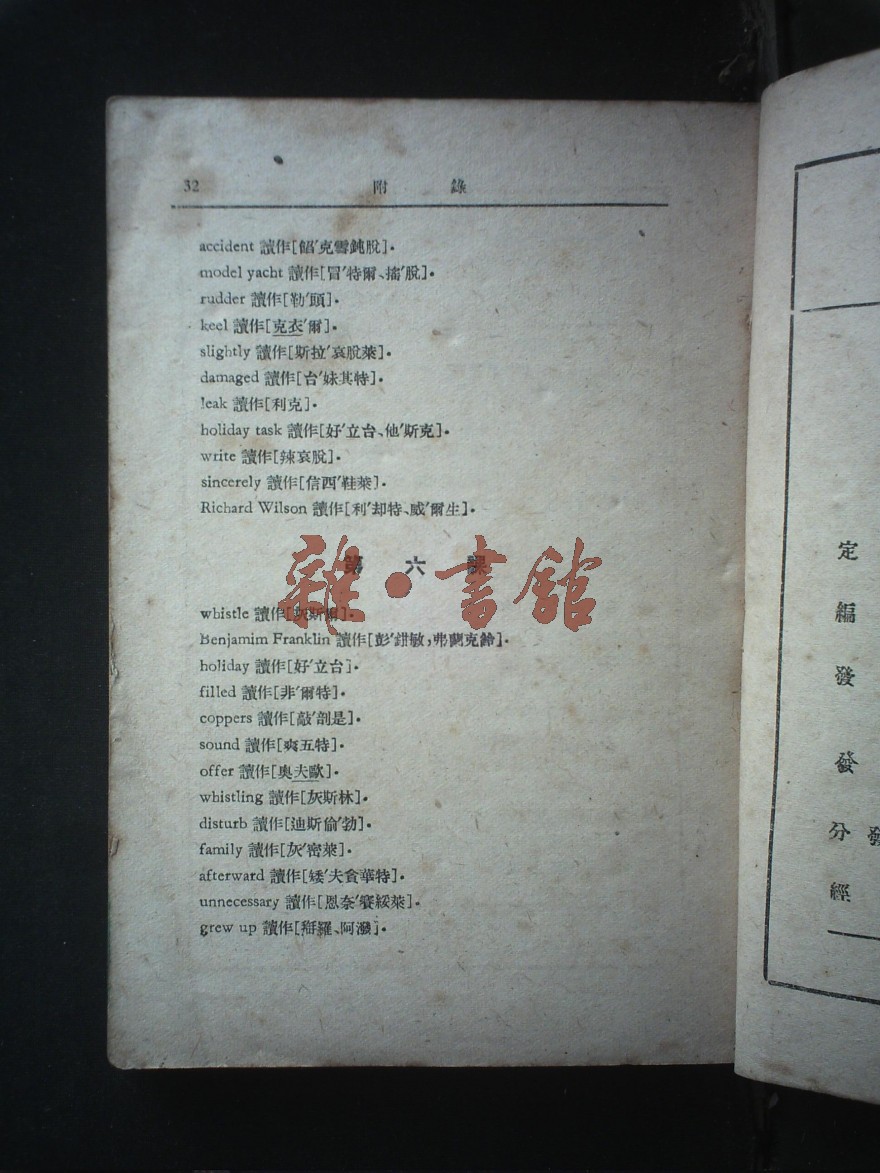 32 附錄
accident 讀作[餡′克雪鈍脫]。
model yacht 讀作[冒′特爾、搖′脫]。
rudder 讀作[勒′頭]。
keel 讀作[克衣′爾]。
slightly 讀作[斯拉′哀脫萊]。
damaged 讀作[台′妹其特]。
leak 讀作[利克]。
holiday task 讀作[好′立台、他′斯克]。
write 讀作[辣哀脫]。
sincerely 讀作[信西′鞋萊]。
Richard Wilson 讀作[利′却特、威′爾生]。
第六課
雜·書館
whistle 讀作[灰斯爾]。
Benjamim Franklin 讀作[彭′鉗敏,弗蘭克鈴]。
holiday 讀作[好′立台]。
filled 讀作[非′爾特]。
coppers 讀作[敲′剖是]。
sound 讀作[爽五特]。
offer 讀作[奧夫歐]。
whistling 讀作[灰斯林]。
disturb 讀作[迪斯偷′勃]。
family 讀作[灰′密萊]。
afterward 讀作[矮′夫貪華特]。
unnecessary 讀作[恩奈′餐綏萊]。
grew up 讀作[羅、阿潑]。
定
編
發
發
分 發
經